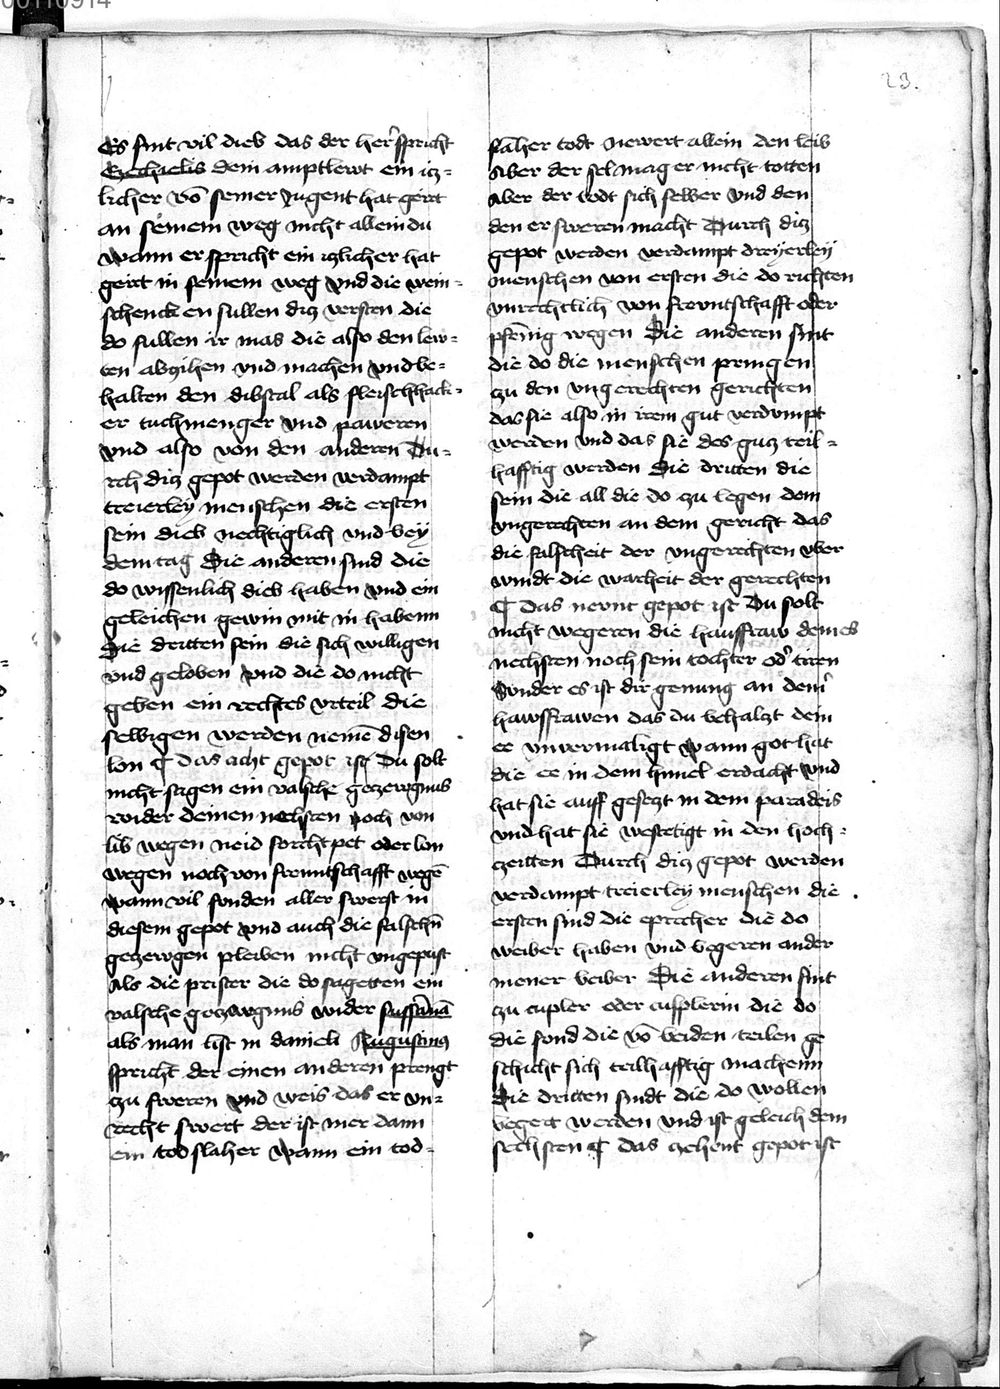 23.
Es sint vil dieb das der her spricht
Ezechielis dem amptlewt ein itz-
licher vō seiner Jugent hat geirt
an seinem weg nicht allein du
wann er spricht ein itzlicher hat
geirt in seinem weg vnd die wein-
schencken sullen ditz versten die
do fullen ir mas die also den lew-
ten abzihen vnd machen vnd be-
halten den dibstal als fleischhack-
er tuchmenger vnd paweren
vnd also von den anderen Du-
rch ditz gepot werden verdampt
treierley menschen die ersten
sein dieb nechtiglich vnd bey
dem tag Die anderen sind die
do wissenlich dieb haben vnd ein
geleichen gewin mit in habenn
Die dritten sein die sich willigen
vnd geloben vnd die do nicht
geben ein rechtes vrteil die
selbigen werden nemē disen
lon ¶ Das acht gepot ist Du solt
nicht sagen ein valsche getzewgnus
wider deinen nechsten noch von
lib wegen neid forcht pet oder lon
wegen noch von freuntschafft wegē
wann vil sonden aller swerst in
diesem gepot vnd auch die falschn̄
getzewgen pleiben nicht vngepust
Als die prister die do sagetten ein
valsche getzewgnus wider sussānā
als man list in danieli Augustinus
spricht der einen anderen prengt
zu sweren vnd weis das er vn-
recht swert der ist mer dann
ein todslaher Wann ein tod-
slaher todt newert allein den leib
Aber der sel mag er nicht totten
Aber der todt sich selber vnd den
den er sweren macht Durch ditz
gepot werden verdampt dreyerley
menschen von ersten die do richten
vnrechtlich von frewntschafft oder
pfēnig wegen Die anderen sint
die do die menschen pringen
zu den vngerechten gerichten
das sie also in irem gut verdumpt
werden vnd das sie des gutz teil-
hafftig werden Die dritten die
sein die all die do zu legen dem
vngerechten an dem gericht das
die falscheit der vngerechten vber
windt die warheit der gerechten
¶ Das newnt gepot ist Du solt
nicht wegeren die hausfraw deines
nechsten noch sein tochter od' diren
Sunder es ist dir genung an deiner
hawsfrawen das du behalzt dein
ee vnuermaligt Wann got hat
die ee in dem himel erdacht vnd
hat sie auff gesetzt in dem paradeis
vnd hat sie westetigt in den hoch-
zeitten Durch ditz gepot werden
verdampt treierley menschen die
ersten sind die eprecher die do
weiber haben vnd begeren ander
mener beiber Die anderen sint
zu cupler oder cuplerin die do
die sond die vō beiden teilen ge
schicht sich teilhafftig machenn
Die dritten sindt die do wollen
begert werden vnd ist geleich dem
sechsten ¶ Das zehent gepot ist